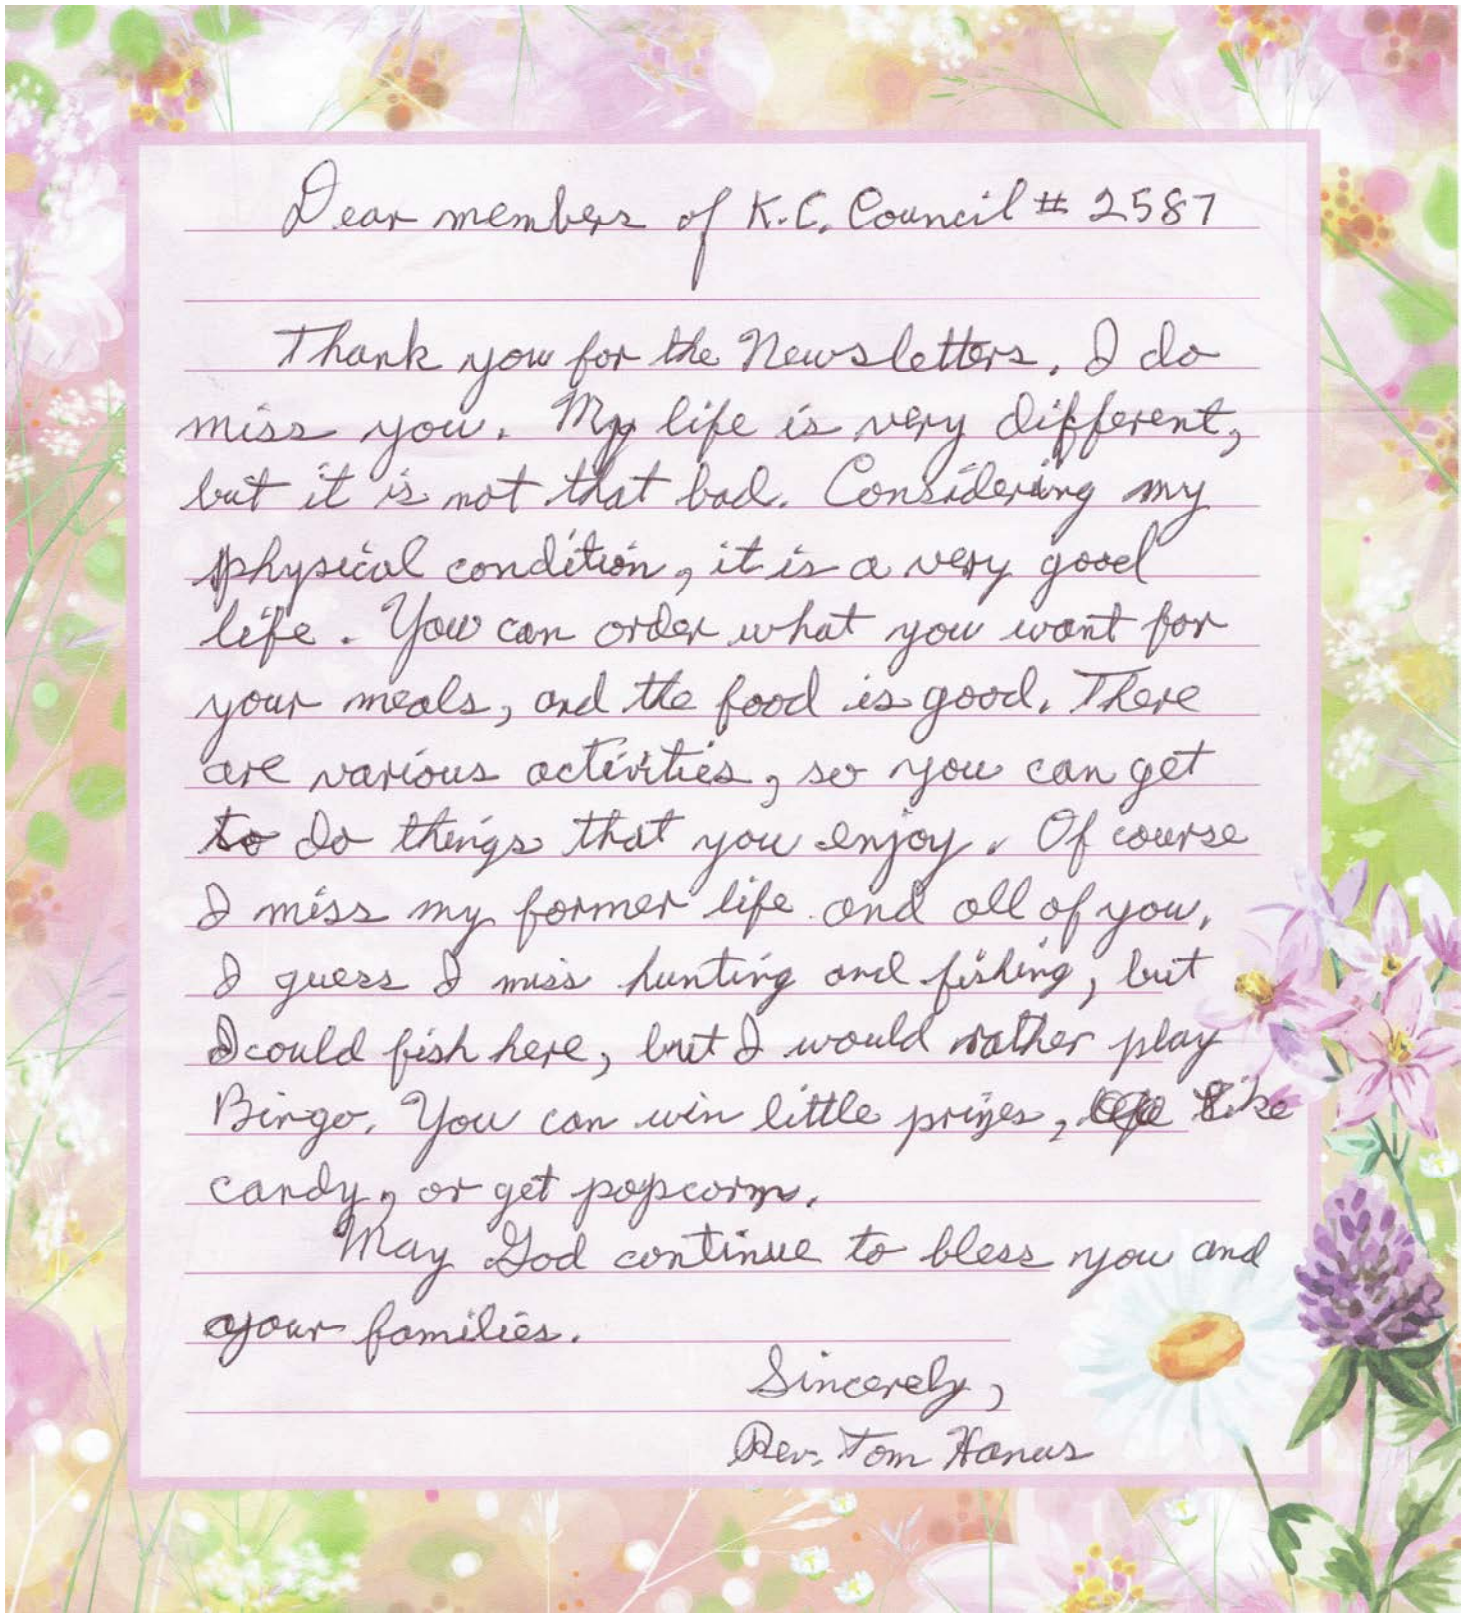 Dear members of K.C. Council # 2587
Thank you for the Newsletters. I do
miss you. My life is very different,
but it is not that bad. Considering my
physical condition, it is a very good
life. You can order what you want for
your meals, and the food is good. There
are various activities, so you can get
to do things that you enjoy. Of course
I miss my former life and all of you.
I guess I miss hunting and fishing, but
I could fish here, but I would rather play
Bingo. You can win little prizes, like
candy, or get popcorn.
May God continue to bless you and
your families.
Sincerely,
Rev. Tom Hanus